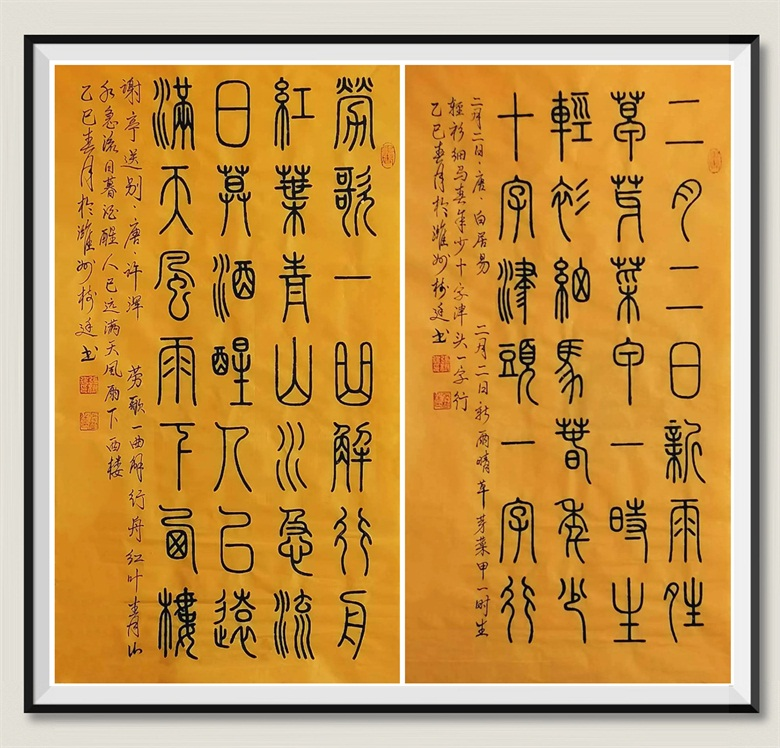 二月二日新雨晴
草芽菜甲一時生
輕衫細馬春年少
十字津頭一字行
二月二日·唐·白居易 二月二日新雨晴草芽菜甲一时生
轻衫细马春年少十字津头一字行
乙巳春月於潍州樹庭书
勞歌一曲解行舟
紅葉青山水急流
日暮酒醒人已遠
滿天風雨下西樓
谢亭送别·唐·许浑 劳歌一曲解行舟红叶青山
水急流日暮酒醒人已远满天风雨下西楼
乙巳春月於潍州樹庭书